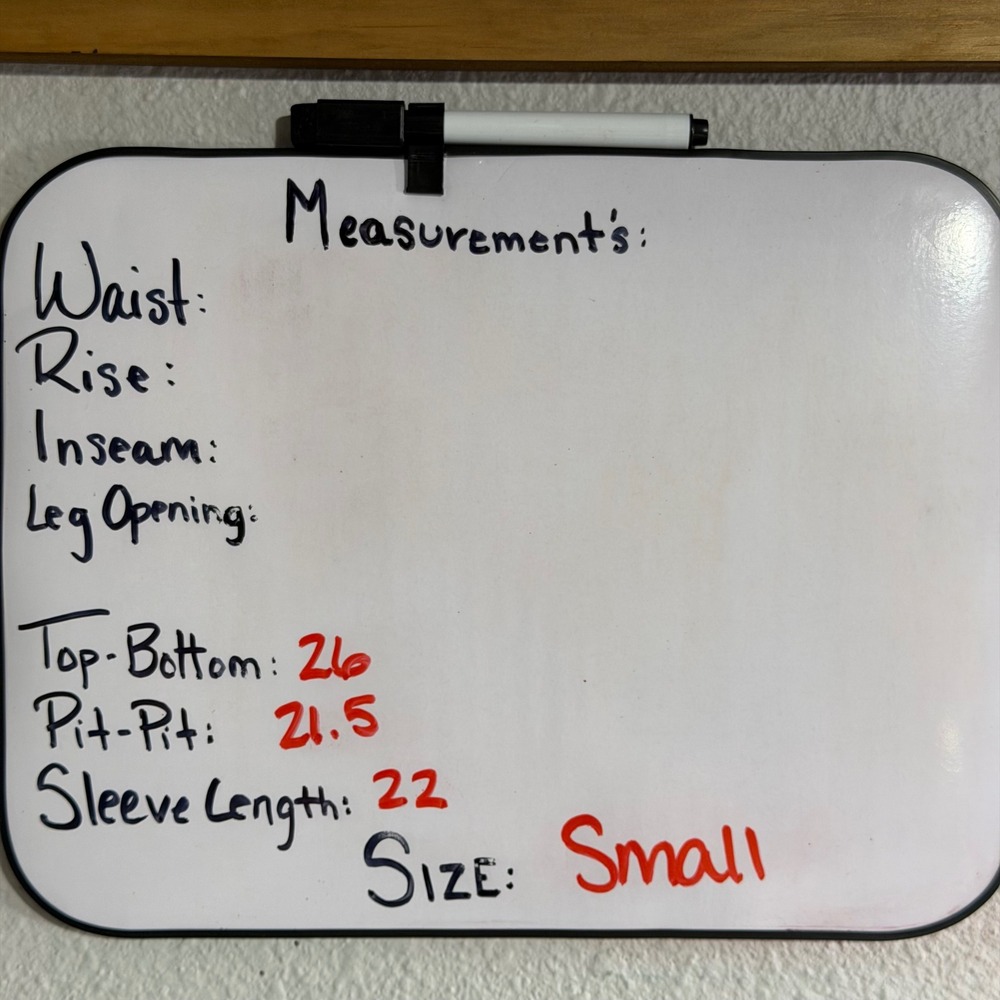 Measurement's:
Waist:
Rise:
Inseam:
Leg Opening:
Top-Bottom: 26
Pit-Pit: 21.5
Sleeve Length: 22
SIZE: Small